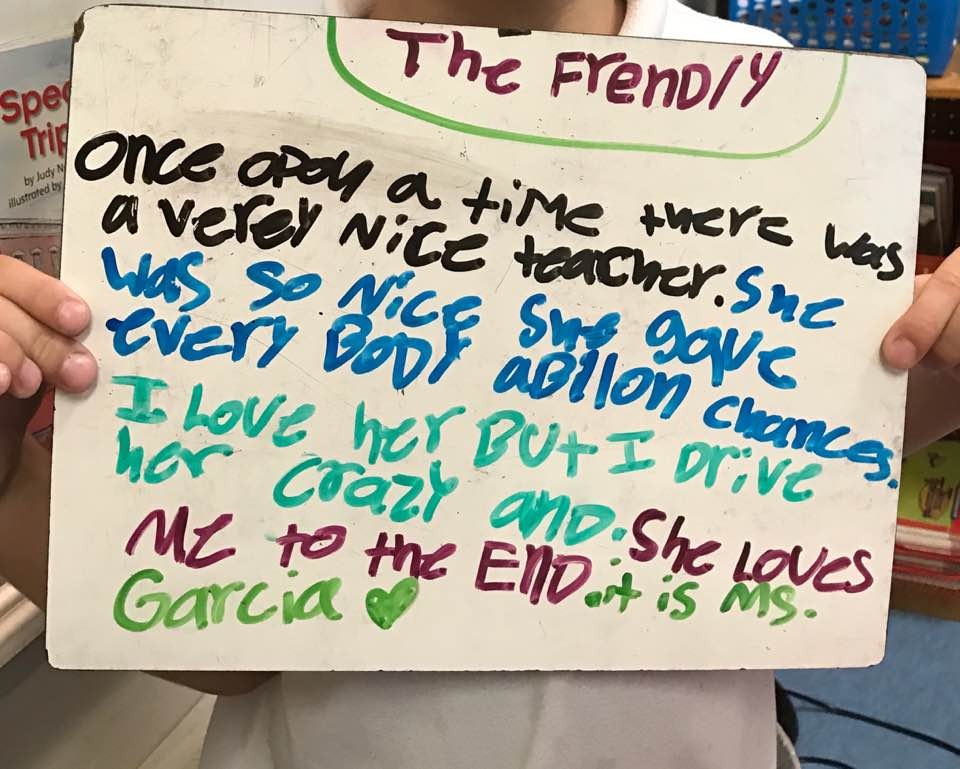 The Frendly
Once opon a time there was
a verey Nice teacher. She
was so Nice she gave
every Body aBllon chances.
I Love her But I Drive
her crazy and. She Loves
Me to the End. it is Ms.
Garcia
Spec
Trip
by Judy N
illustrated by